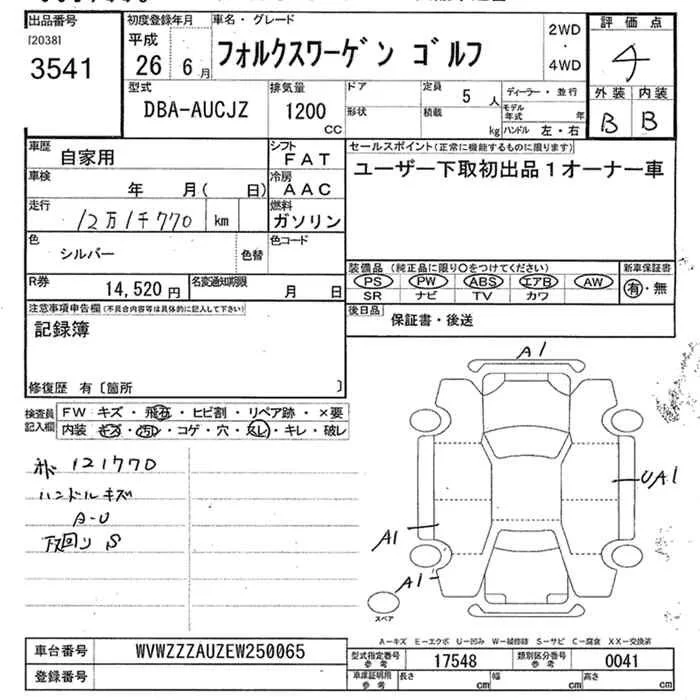 出品番号
[2038]
3541
初度登録年月
平成
26年 6月
車名・グレード
フォルクスワーゲン ゴルフ
2WD
・
4WD
評価点
4
外装 内装
B B
型式
DBA-AUCJZ
排気量
1200
CC
ドア
形状
定員
5 人
積載
kg
ディーラー・並行
モデル年式 年
ハンドル 左・右
車歴 自家用
シフト FAT
車検 年 月( 日)
冷房 AAC
走行 12万1千770 km
燃料 ガソリン
色 シルバー 色替
色コード
R券 14,520円
名変通知期限 月 日
セールスポイント(正常に機能するものに限ります)
ユーザー下取初出品1オーナー車
装備品(純正品に限り○をつけてください)
PS PW ABS エアB AW
SR ナビ TV カワ
新車保証書
有・無
後日品 保証書・後送
注意事項申告欄(不具合内容等は具体的に記入して下さい)
記録簿
修復歴 有〔箇所 〕
検査員記入欄
FW キズ・飛石・ヒビ割・リペア跡・×要
内装 キズ・汚レ・コゲ・穴・スレ・キレ・破レ
121770
ハンドルキズ
A-U
下回りS
A1
UA1
A1
A1
スペア
A-キズ E-エクボ U-凹み W-補修跡 S-サビ C-腐食 XX-交換済
車台番号 WVWZZZAUZEW250065
登録番号
型式指定番号 参考 17548
類別区分番号 参考 0041
車庫証明記載 参考
長さ cm 幅 cm 高さ cm